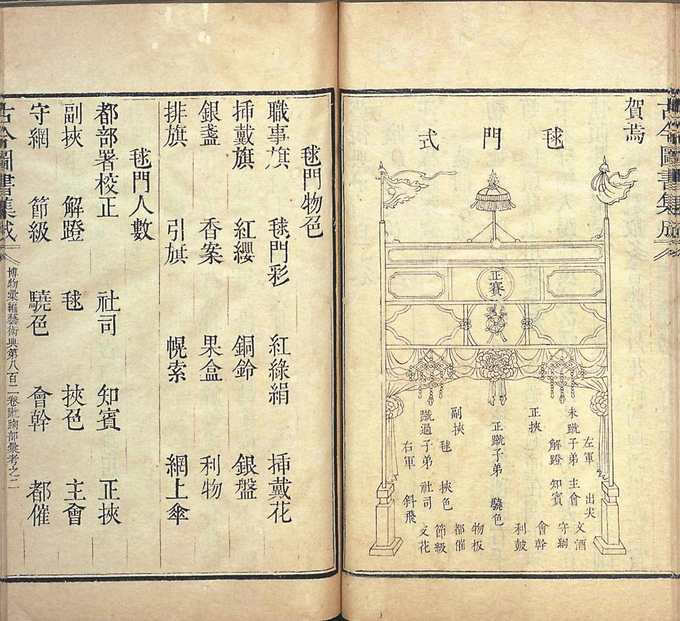 古今圖書集成
賀焉
毬門式
正賽
左軍 出尖
文酒
未蹴子弟 主會
守網
解蹬 知賓
會幹
正挾
利鼓
正蹴子弟 驍色
物板
副挾 都催
毬 挾色
節級
蹴過子弟 社司
文花
右軍 斜飛
毬門物色
職事旗 毬門彩 紅綠絹 挿戴花
挿戴旗 紅纓 銅鈴 銀盤
銀盞 香案 果盒 利物
排旗 引旗 幌索 網上傘
毬門人數
都部署校正 社司 知賓 正挾
副挾 解蹬 毬 挾色 主會
守網 節級 驍色 會幹 都催
古今圖書集成 博物彙編藝術典第八百二卷蹴踘部彙考之二